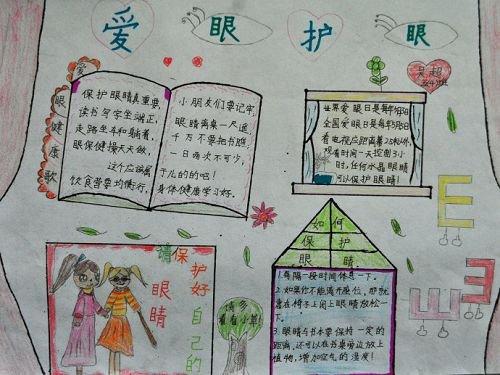 爱 眼 护 眼
爱眼健康歌
保护眼睛真重要,
读书写字坐端正,
走路坐车和躺着,
眼保健操天天做,
这个应该属
饮食营要均衡行,
小朋友们要记牢,
眼睛离桌一尺远
千万不要把书
一日两次不可少,
于儿的的吧!
身体健康学习好。
吴超
世界爱眼日是每年
全国爱眼日是每年
看电视应距离
观看时间一天控制3小
时,任何水晶眼睛
可以保护眼睛!
如何
保护
眼睛
1.每隔一段时间休息一下。
2.如果你不能离开座位,那就
靠在椅子上闭上眼睛放松一
下。
3.眼睛与书本要保持一定的
距离,还可以在书桌旁边放上
植物,增加空气的湿度!
请保护好自己的
眼睛
请多
看看小草!
E
E
E